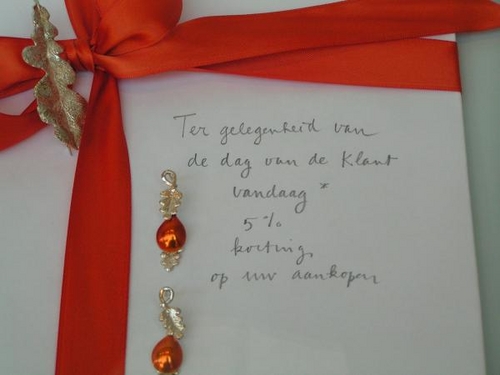 Ter gelegenheid van
de dag van de Klant
vandaag *
5%
korting
op uw aankopen